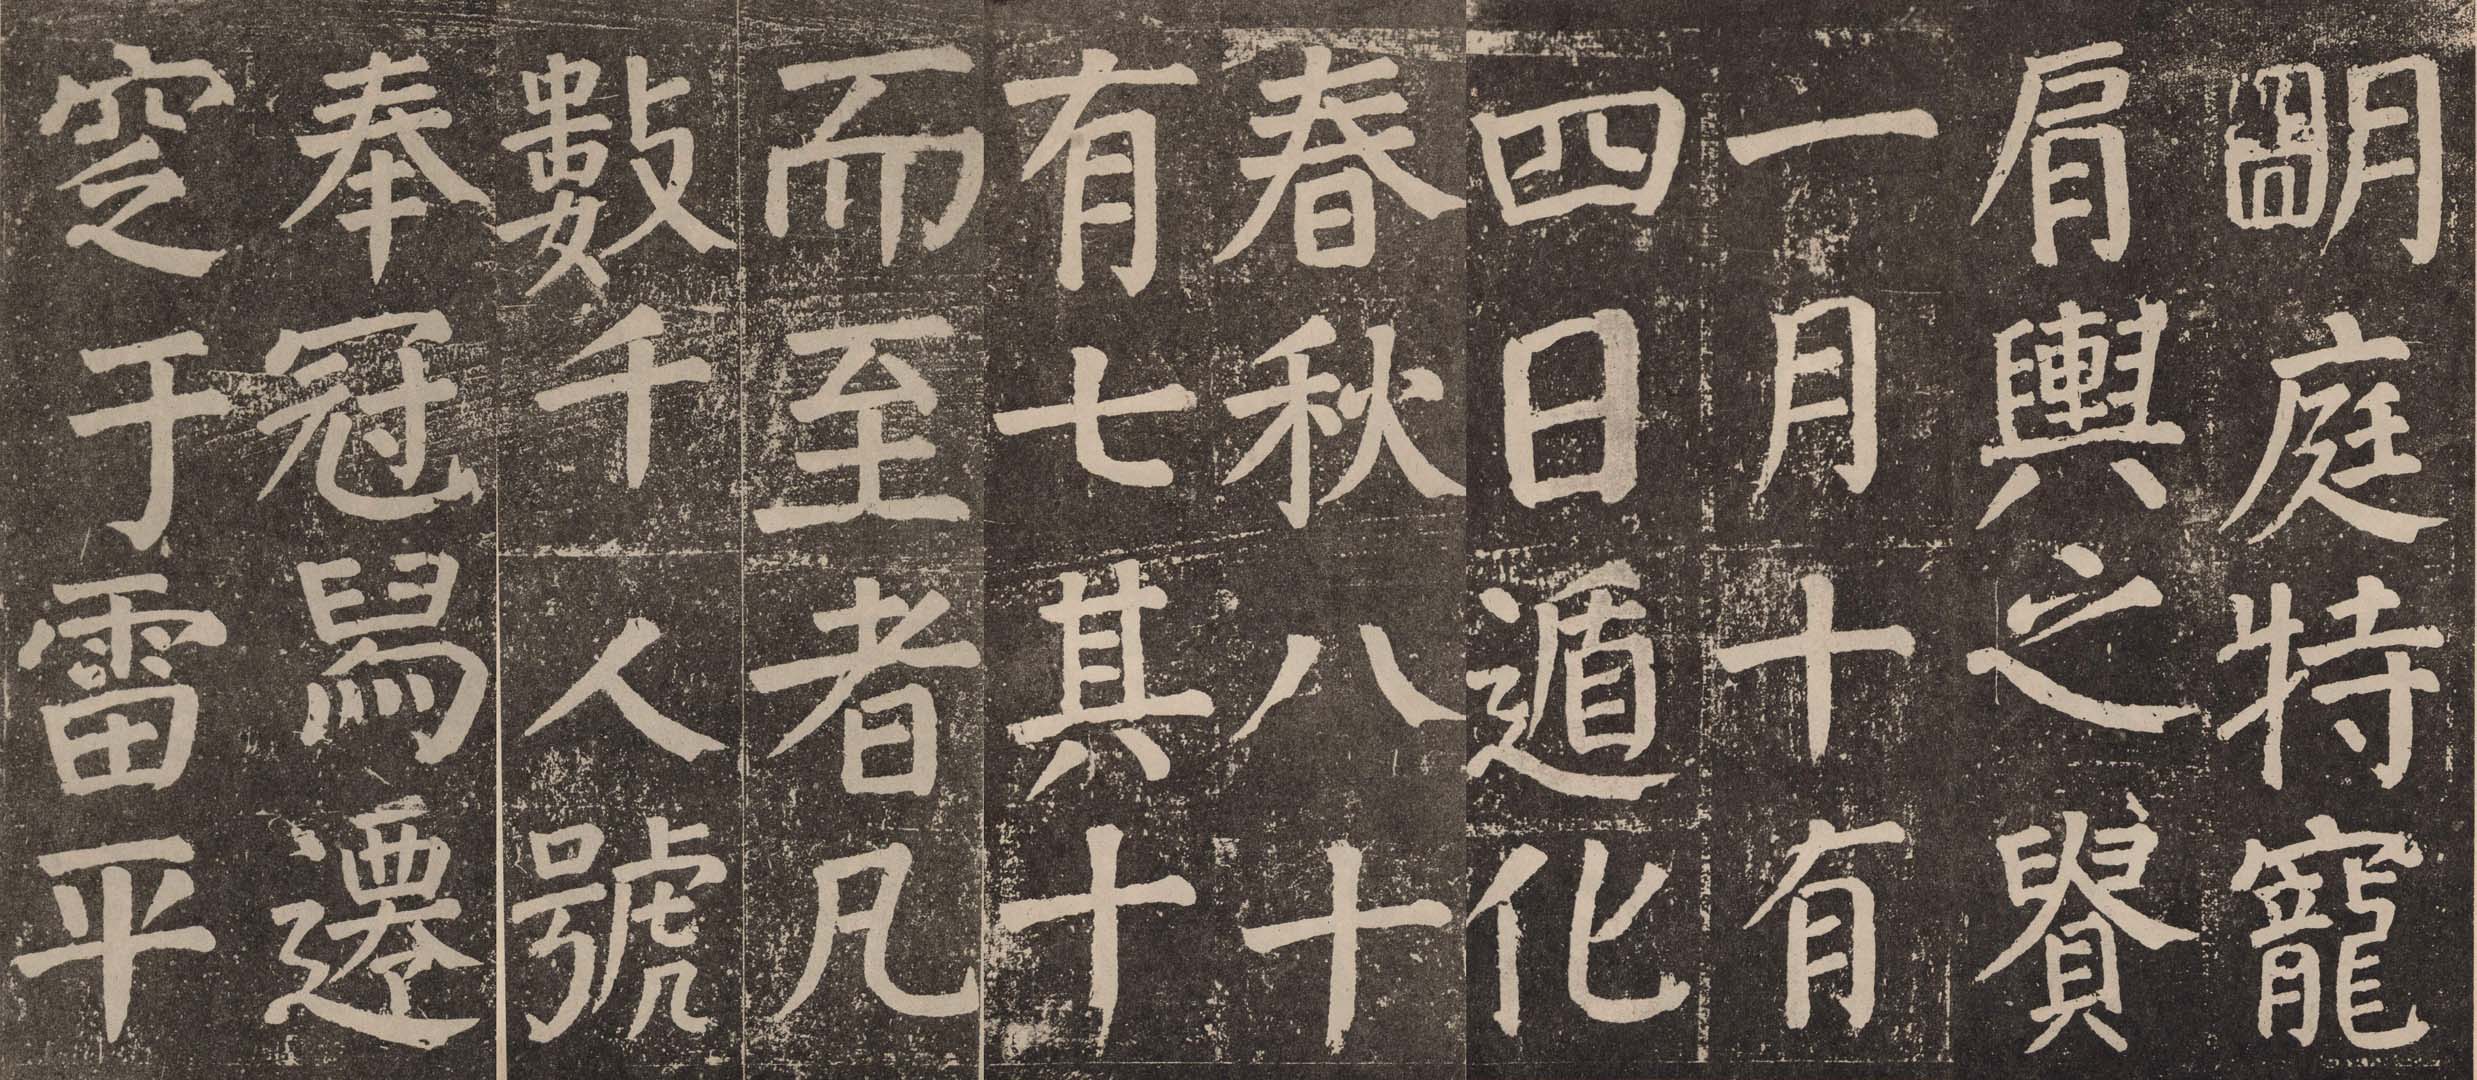 朙庭特寵
肩輿之貴
一月十有
四日遁化
春秋八十
有七其十
而至者凡
數千人號
奉冠舄遷
窆于雷平